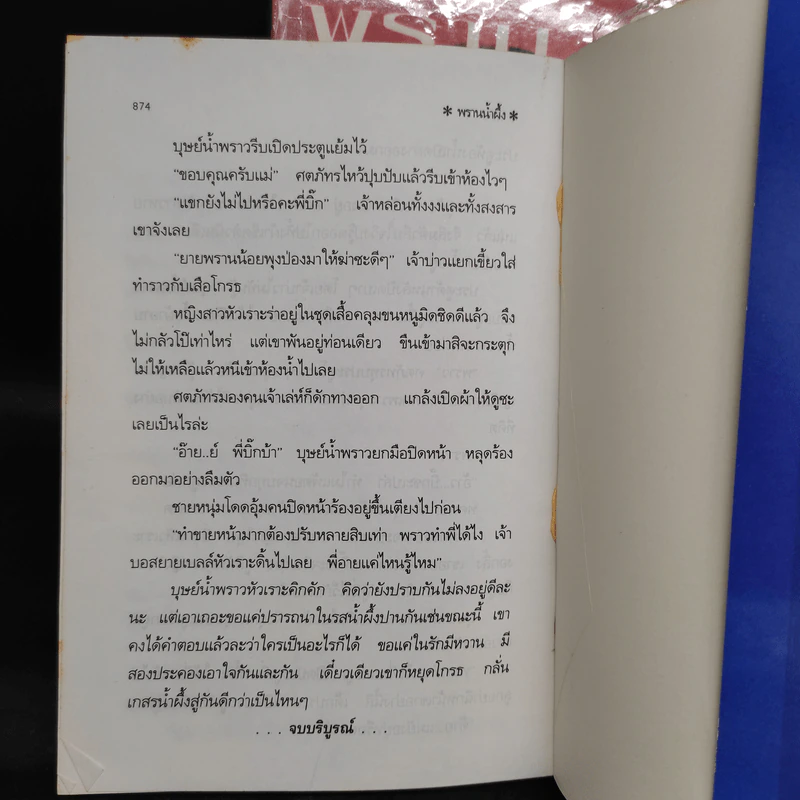 พราน
874
* พรานน้ำผึ้ง *
บุษย์น้ำพราวรีบเปิดประตูแย้มไว้
“ขอบคุณครับแม่” ศตภัทรไหว้ปุบปับแล้วรีบเข้าห้องไวๆ
“แขกยังไม่ไปหรือคะพี่บิ๊ก” เจ้าหล่อนทั้งงงและทั้งสงสาร
เขาจังเลย
“ยายพรานน้อยพุงป่องมาให้ฆ่าซะดีๆ” เจ้าบ่าวแยกเขี้ยวใส่
ทำราวกับเสือโกรธ
หญิงสาวหัวเราะร่าอยู่ในชุดเสื้อคลุมขนหนูมิดชิดดีแล้ว จึง
ไม่กลัวโป๊เท่าไหร่ แต่เขาพันอยู่ท่อนเดียว ขืนเข้ามาสิจะกระตุก
ไม่ให้เหลือแล้วหนีเข้าห้องน้ำไปเลย
ศตภัทรมองคนเจ้าเล่ห์ก็ดักทางออก แกล้งเปิดผ้าให้ดูซะ
เลยเป็นไรล่ะ
“อ๊าย..ย์ พี่บิ๊กบ้า” บุษย์น้ำพราวยกมือปิดหน้า หลุดร้อง
ออกมาอย่างลืมตัว
ชายหนุ่มโดดอุ้มคนปิดหน้าร้องอยู่ขึ้นเตียงไปก่อน
“ทำขายหน้ามากต้องปรับหลายสิบเท่า พราวทำพี่ได้ไง เจ้า
บอสยายเบลล์หัวเราะดิ้นไปเลย พี่อายแค่ไหนรู้ไหม”
บุษย์น้ำพราวหัวเราะคิกคัก คิดว่ายังปราบกันไม่ลงอยู่ดีละ
นะ แต่เอาเถอะขอแค่ปรารถนาในรสน้ำผึ้งปานกันเช่นขณะนี้ เขา
คงได้คำตอบแล้วละว่าใครเป็นอะไรก็ได้ ขอแค่ในรักมีหวาน มี
สองประคองเอาใจกันและกัน เดี๋ยวเดียวเขาก็หยุดโกรธ กลั่น
เกสรน้ำผึ้งสู่กันดีกว่าเป็นไหนๆ
. . . จบบริบูรณ์ . . .